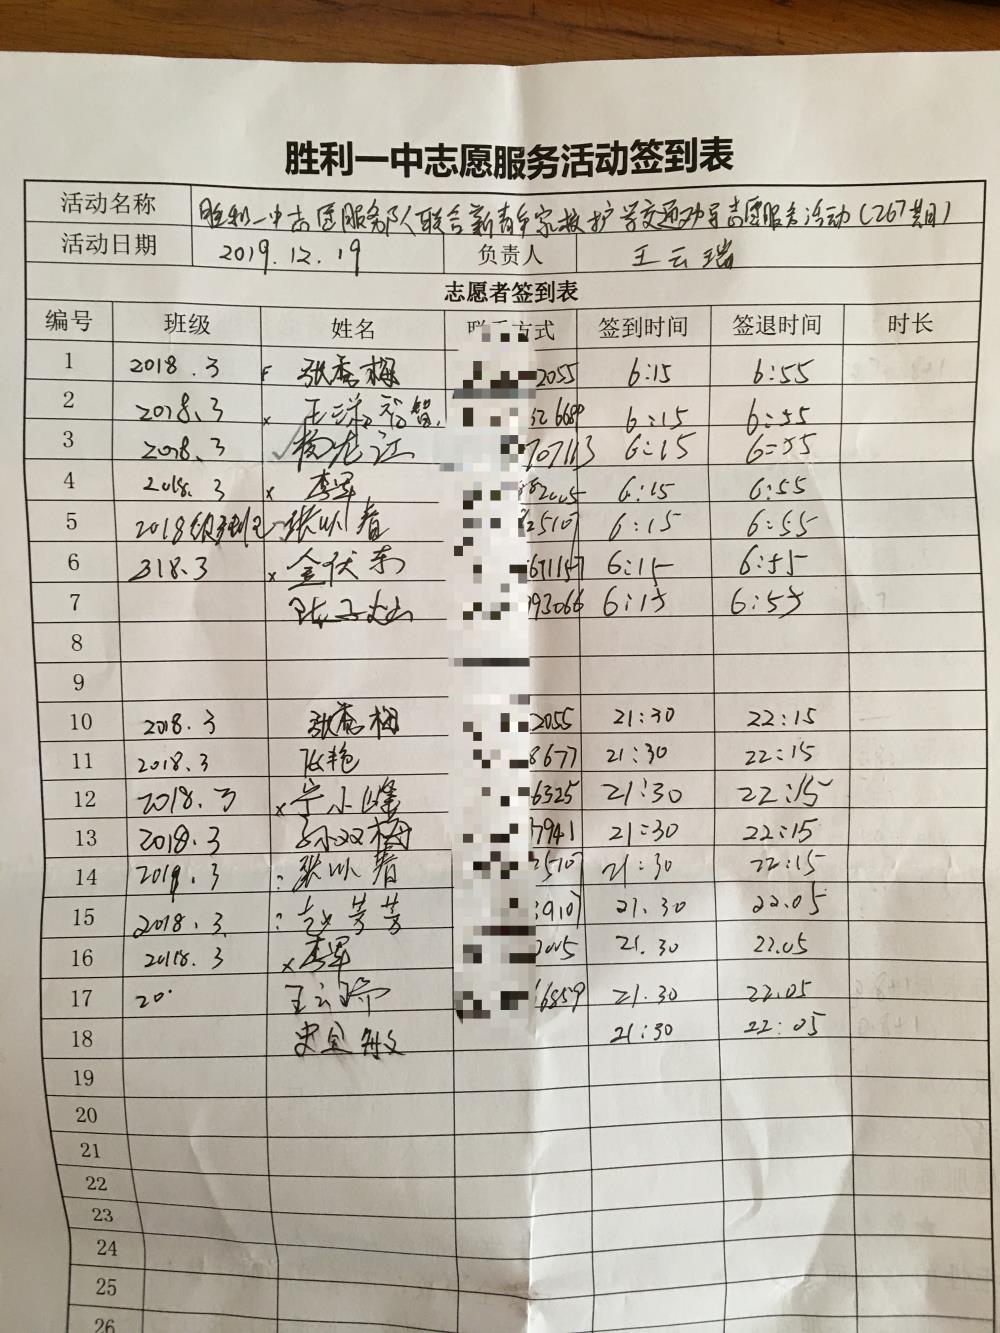 胜利一中志愿服务活动签到表
活动名称 胜利一中志愿服务队联合新青年家校护学交通劝导志愿服务活动(267期)
活动日期 2019.12.19 负责人 王云瑞
志愿者签到表
编号 班级 姓名 方式 签到时间 签退时间 时长
1 2018.3 张秀梅 2055 6:15 6:55
2 2018.3 6:15 6:55
3 2018.3 杨龙江 707113 6:15 6:55
4 2018.3 李军 82005 6:15 6:55
5 2018级 25107 6:15 6:55
6 318.3 金伏东 671157 6:15 6:55
7 93066 6:15 6:55
8
9
10 2018.3 张秀梅 2055 21:30 22:15
11 2018.3 张艳 8677 21:30 22:15
12 2018.3 宁小峰 6325 21:30 22:15
13 2018.3 孙双梅 7941 21:30 22:15
14 2018.3 2510 21:30 22:15
15 2018.3 赵芳芳 9107 21.30 22.05
16 2018.3 李军 2005 21.30 22.05
17 20 王云瑞 6859 21.30 22.05
18 21:30 22:05
19
20
21
22
23
24
25
26